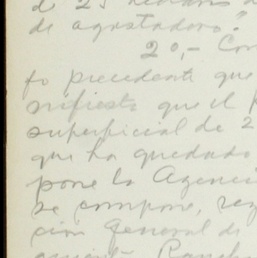 de agostadero."
2o,- Con
to precedente que
nifiesta que el
superficial de 2
que ha quedado
pone la Agenci
se compone, seg
ción General de